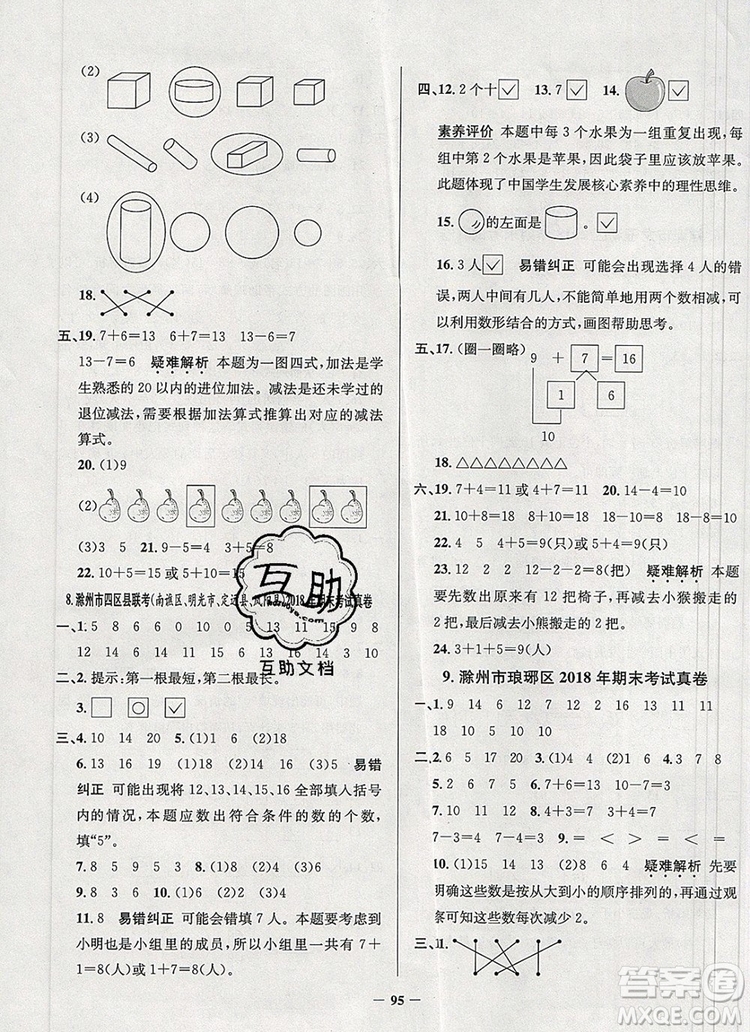 (2)
(3)
(4)
18.
五、19. 7+6=13 6+7=13 13-6=7
13-7=6 疑难解析 本题为一图四式,加法是学
生熟悉的 20 以内的进位加法。减法是还未学过的
退位减法,需要根据加法算式推算出对应的减法
算式。
20. (1)9
(2)
(3)3 5 21. 9-5=4 3+5=8
22.
8.滁州市四区县联考(南谯区、明光市、定远县、凤阳县)2018年期末考试真卷
一、1. 5 8 6 9 0 10 15 11 9 8
12 14 16 10 13 9 14 3 10 13
二、2. 提示:第一根最短,第二根最长。
3.
三、4. 10 14 20 5. (1)2 (2)18
6. 13 14 15 16 (1)18 (2)16 (3)5 易错
纠正 可能出现将 12、13、14、15、16 全部填入括号
内的情况,本题应数出符合条件的数的个数,
填“5”。
7. 8 5 9 4 8. 3 4 5 9. 8 6 2 8
10. 7 3 16
11. 8 易错纠正 可能会错填 7 人。本题要考虑到
小明也是小组里的成员,所以小组里共有 7+
1=8(人)或 1+7=8(人)。
四、12. 2 个十 13. 7 14.
素养评价 本题中每 3 个水果为一组重复出现,每
组中第 2 个水果是苹果,因此袋子里应该放苹果。
此题体现了中国学生发展核心素养中的理性思维。
15. 的左面是
16. 3 人 易错纠正 可能会出现选择 4 人的错
误,两人中间有几人,不能简单地用两个数相减,可
以利用数形结合的方式,画图帮助思考。
五、17. (圈一圈略) 9 + 7 = 16
1 6
10
18. △△△△△△△△
六、19. 7+4=11 或 4+7=11 20. 6+4=10
21. 10+8=18 或 8+10=18 18-8=10
22. 5+4=9(只)或 4+5=9(只)
23. 12-2-2=8(把) 疑难解析 本题
要先数出原来有 12 把椅子,再减去小猴搬走的
2 把,最后减去小熊搬走的 2 把。
24. 3+1+5=9(人)
9. 滁州市琅琊区 2018 年期末考试真卷
一、1. 9 14 6 7 12 12 2 16 13 11
18 10 5 10 9 9 7 3 11 13
二、2. 6 17 20 3. 5 15 4. 1 3 7 8
5. 9 0 6. 12 13 7. 1 6 16
8. 5 2 7 10+6=16 7+6=13
7-3=4 7-5=2 9. = < > = < >
10. (1)15 18 19 (2)8 6 4 疑难解析 先要
明确这些数是按从大到小的顺序排列的,再通过观
察可知这些数每次减少 2。
三、11.
— 95 —
互助
互助文档
答案圈
MXQE.COM